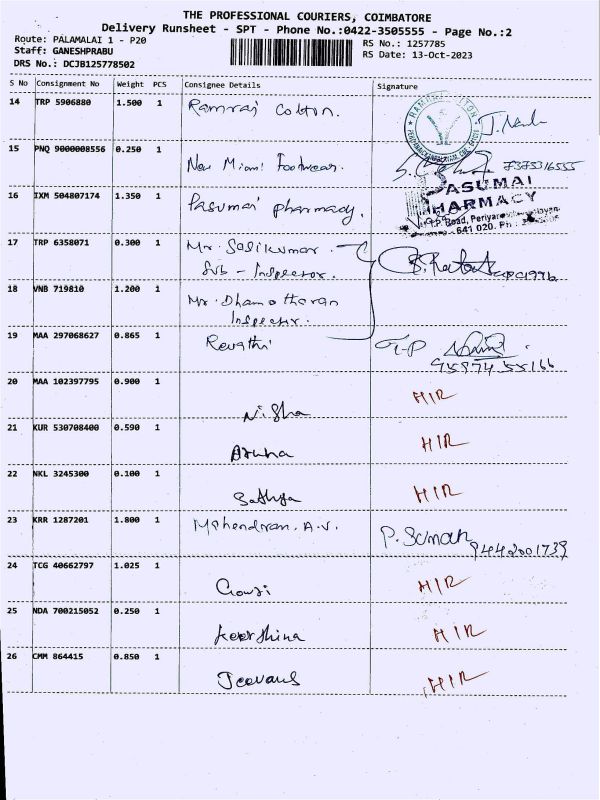 THE PROFESSIONAL COURIERS, COIMBATORE
Delivery Runsheet - SPT - Phone No.:0422-3505555 - Page No.:2
Route: PALAMALAI 1 - P20
Staff: GANESHPRABU
DRS No.: DCJB125778502
RS No.: 1257785
RS Date: 13-Oct-2023
S No Consignment No Weight PCS Consignee Details Signature
14 TRP 5906880 1.500 1 Ramraj Cotton.
15 PNQ 9000008556 0.250 1 New Miami Footwear. 7373316555
16 IXM 504807174 1.350 1 Pasumai pharmacy. PASUMAI
PHARMACY
Road,
641 020.
17 TRP 6358071 0.300 1 Mr. Sasikumar
Sub - Inspector.
18 VNB 719810 1.200 1 Mr. Dhamotharan
Inspector.
19 MAA 297068627 0.865 1 Revathi
95974 55166
20 MAA 102397795 0.900 1 Nisha HIR
21 KUR 530708400 0.590 1 Aruna HIR
22 NKL 3245300 0.100 1 Sathya HIR
23 KRR 1287201 1.800 1 Mahendran. A.V. P. Suman
9442001739
24 TCG 40662797 1.025 1 Gowri HIR
25 NDA 700215052 0.250 1 Keerthina HIR
26 CMM 864415 0.850 1 Jeevans HIR